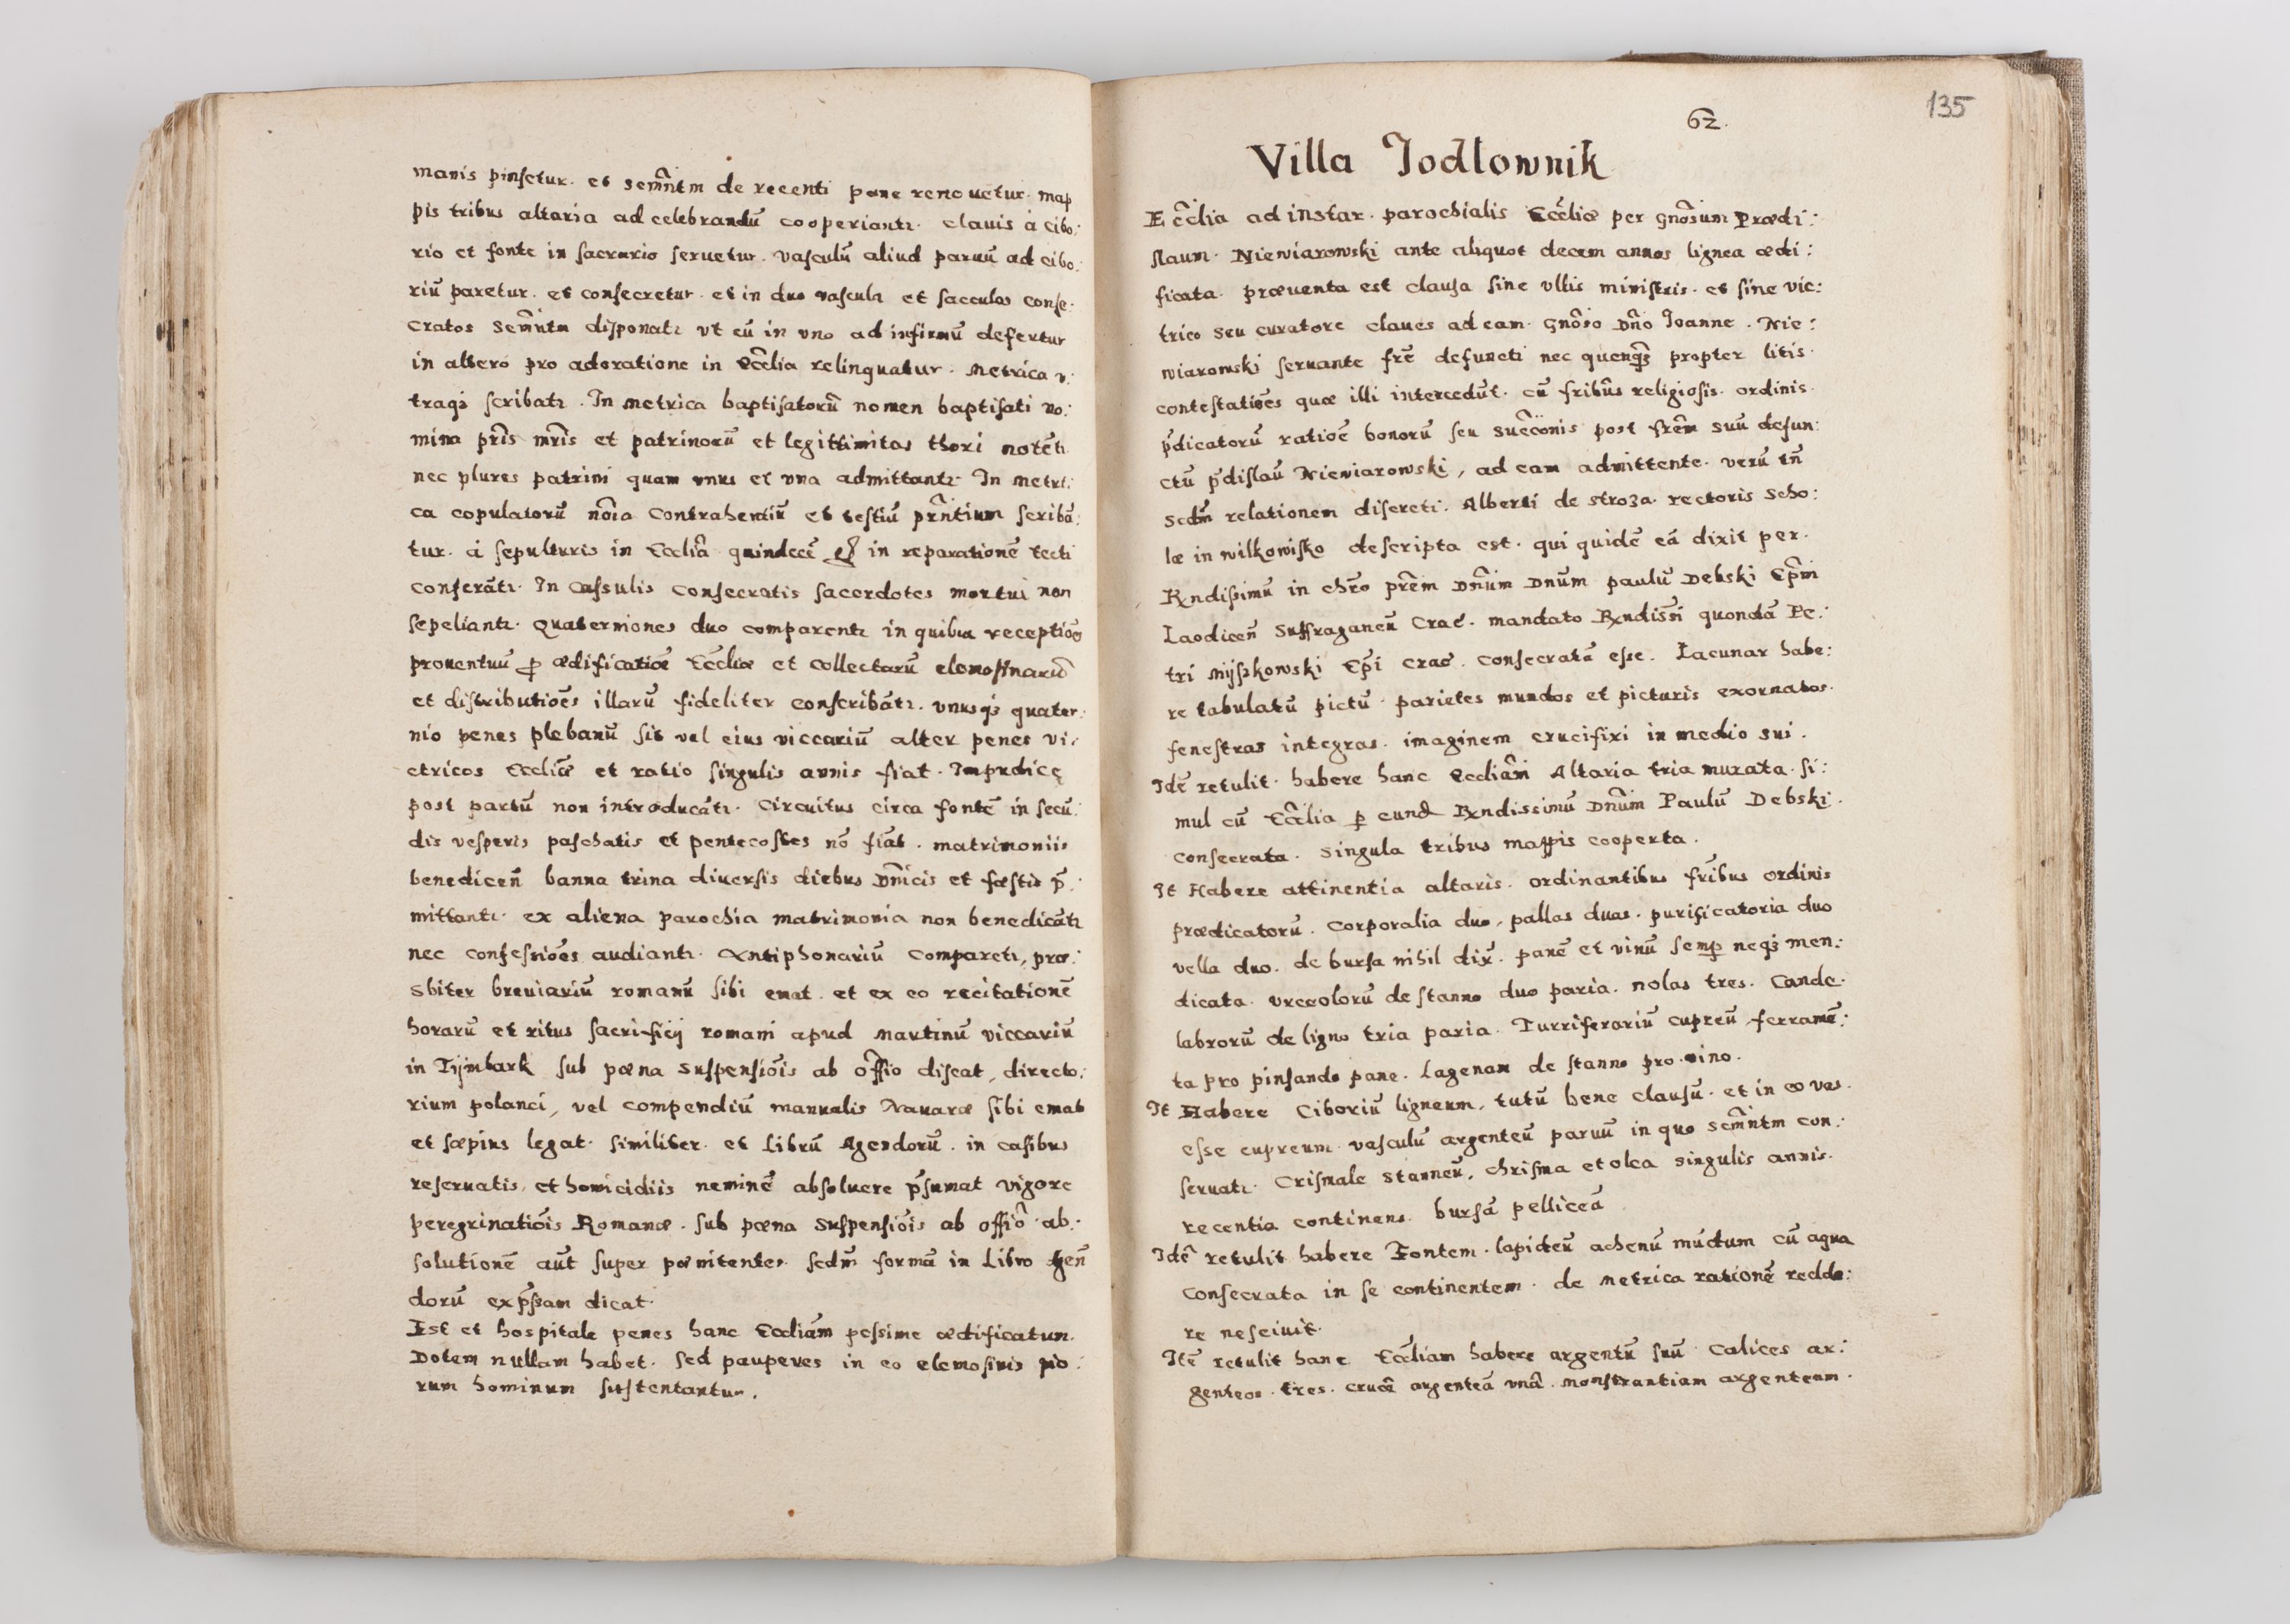 manis pinsetur. et semñtm de recenti pane renouetur. map
pis tribus altaria ad celebrandũ cooperiantr. clauis à cibo:
rio et fonte in sacrario seruetur. vasculũ aliud paruũ ad cibo:
riũ paretur. et consecretur. et in duo vascula et sacculos conse-
cratos semñtm disponatr vt cũ in vno ad infirmũ defertur
in altero pro adoratione in Eccłia relinquatur. Metrica v:
traqз scribatr. In metrica baptisatorũ nomen baptisati no:
mina pris mris et patrinorũ et legittimitas thori notẽtr
nec plures patrini quam vnus et vna admittantr. In metri:
ca copulatorũ noĩa contrahentiũ et testiũ prñtium scribã:
tur. à sepulturis in Eccliã quindecẽ in reparationẽ tecti
conferãtr. In Capsulis consecratis sacerdotes mortui non
sepeliantr. Quaterniones duo comparentr in quibus receptiões
prouentuũ p ædificatiõe Eccliæ et collectarũ elemosinarũ
et distributiões illarũ fideliter conscribãtr. vnusqз quater:
nio penes plebanũ sit vel eius viccariũ alter penes vi:
ctricos Eccliæ et ratio singulis annis fiat. Impudicę
post partũ non introducãtr. Circuitus circa fontẽ in secũ:
dis vesperis paschatis et pentecostes nõ fiãt. matrimoniis
benedicen̄ banna trina diuersis diebus Dñicis et fæstis p̃:
mittantr. ex aliena parochia matrimonia non benedicãtr
nec confessiões audiantr. Antiphonariũ comparetr, præ:
sbiter breuiariũ romanũ sibi emat. et ex eo recitationẽ
horarũ et ritus sacrificij romani apud Martinũ viccariũ
in Tijmbark sub pœna suspensiõis ab offio discat, directo:
rium polanci, vel compendiũ manualis Nauaræ sibi emat
et sæpius legat. similiter et Librũ Agendorũ. in casibus
reseruatis, et homicidiis neminẽ absoluere p̃sumat vigore
peregrinatiõis Romanæ. sub pœna suspensiõis ab offiõ. ab:
solutionẽ aũt super pœnitentes sedm̃ formã in Libro Agen̄
dorũ exp̃ssam dicat.
Est et hospitale penes hanc Eccliãm pessime ædificatum.
Dotem nullam habet. sed pauperes in eo elemosinis pio:
rum hominum sustentantur.
135
62.
Villa Jodlownik
Ecclia ad instar parochialis Eccliæ per gnosum Prædi:
slaum Niewiarowski ante aliquot decem annos lignea ædi:
ficata. præuenta est clausa sine vllis ministris. et sine vic:
trico seu curatore claues ad eam gnoso Dño Joanne. Nie:
wiarowski seruante frẽ defuncti nec quenqз propter litis
contestatiões quæ illi intercedũt. cũ fribus religiosis ordinis
p̃dicatorũ ratiõe bonorũ seu succ̃onis post frẽm suũ defun:
ctũ p̃dislaũ Niewiarowski, ad eam admittente. verũ tñ
scdm̃ relationem discreti. Alberti de stroza rectoris scho:
læ in wilkowisko descripta est. qui quidẽ eã dixit per
Rndissimũ in chrõ prẽm Dñum Dnũm paulũ Debski Epm̃
Laodiceñ suffraganeũ Crac̃. mandato Rndissi quondã Pe:
tri Mijszkowski Epĩ Crac̃. consecratã esse. Lacunar habe:
re tabulatũ pictũ. parietes mundos et picturis exornatos.
fenestras integras. imaginem crucifixi in medio sui.
Idẽ retulit habere hanc Eccliãm Altaria tria murata. si:
mul cũ Ecclia p eund Rndissimũ Dñum Paulũ Debski.
consecrata. singula tribus mappis cooperta.
It Habere attinentia altaris. ordinantibus fribus ordinis
prædicatorũ. corporalia duo, pallas duas. purificatoria duo
vella duo. de bursa nihil dix̃. panẽ et vinũ semp neqз men:
dicata. vrceolorũ de stanno duo paria. nolas tres. Cande:
labrorũ de ligno tria paria. Turriferariũ cupreũ ferramẽ:
ta pro pinsando pane. Lagenam de stanno pro vino.
It Habere Ciboriũ ligneum, tutũ bene clausũ. et in eo vas
esse cupreum vasculũ argenteũ paruũ in quo semñtm con:
seruatr. Crismale stanneũ, chrisma et olea singulis annis
recentia continens. bursã pelliceã
Idẽ retulit habere Fontem lapideũ achenũ mũctum cũ aqua
consecrata in se continentem. de Metrica rationẽ redde:
re nesciuit.
Itẽ retulit hanc Eccliam habere argentũ suũ calices ar:
genteos tres. crucẽ argenteã vnã. Monstrantiam argenteam.